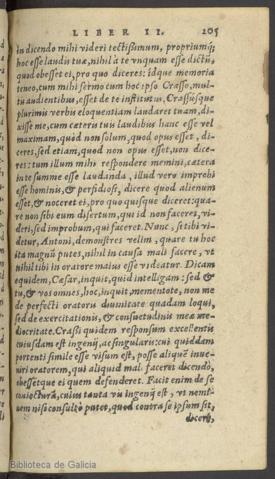 LIBER II. 205
in dicendo mihi videri tectissimum, propriumq;
hoc esse laudis tuæ, nihil à te vnquam esse dictũ,
quod obesset ei, pro quo diceres: idque memoria
teneo, cum mihi sermo cum hoc ipso Crasso, mul-
tis audientibus, esset de te institutus, Crassusque
plurimis verbis eloquentiam laudaret tuam, di-
xisse me, cum ceteris tuis laudibus hanc esse vel
maximam, quòd non solum, quod opus esset, di-
ceres, sed etiam, quod non opus esset, non dice-
res: tum illum mihi respondere memini, cætera
in te summe esse laudanda, illud vero improbi
esse hominis, & perfidiosi, dicere quod alienum
esset, & noceret ei, pro quo quisque diceret: qua-
re non sibi eum disertum, qui id non faceret, vi-
deri, sed improbum, qui faceret. Nunc, si tibi vi-
detur, Antoni, demonstres velim, quare tu hoc
ita magnũ putes, nihil in causa mali facere, vt
nihil tibi in oratore maius esse videatur. Dicam
equidem, Cæsar, inquit, quid intelligam: sed &
tu, & vos omnes, hoc, inquit, mementote, non me
de perfecti oratoris diuinitate quadam loqui,
sed de exercitationis, & consuetudinis meæ me-
diocritate. Crassi quidem responsum excellentis
cuiusdam est ingenij, ac singularis: cui quiddam
portenti simile esse visum est, posse aliquẽ inue-
niri oratorem, qui aliquid mali faceret dicendo,
obessetque ei quem defenderet. Facit enim de se
coniecturã, cuius tanta vis ingenij est, vt nemi-
nem nisi consultò putet, quod contra se ipsum sit,
dicere,
Biblioteca de Galicia